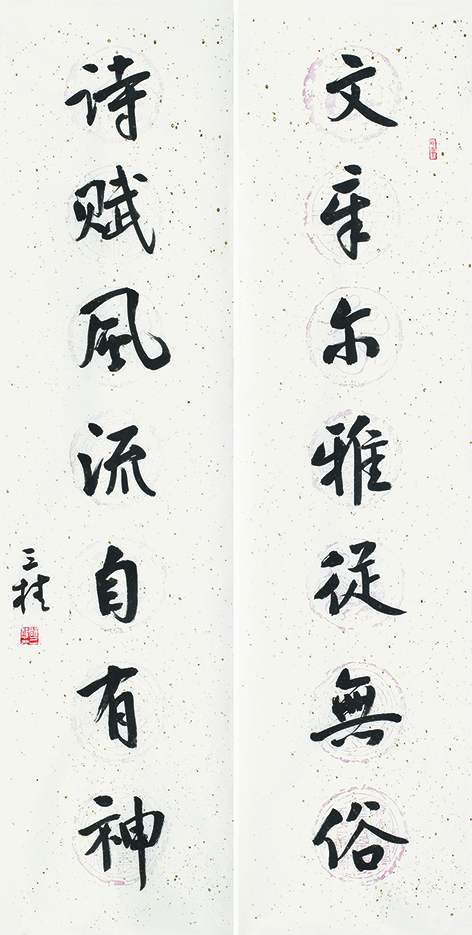 文章尔雅從無俗
诗赋風流自有神
三桂